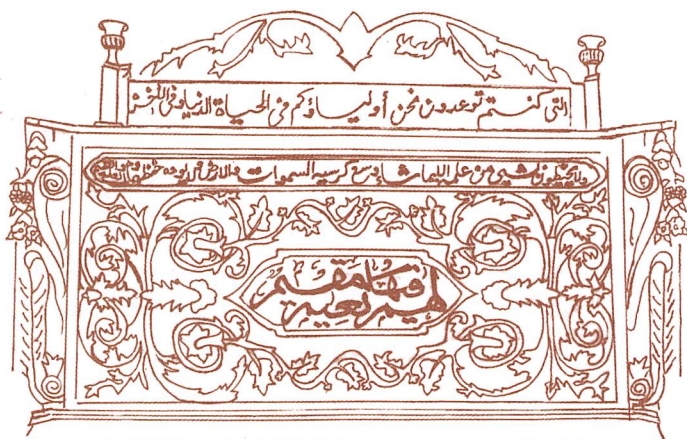 التى كنتم توعدون نحن أولياؤكم فى الحياة الدنيا وفى الآخرة
ولا يحيطون بشىء من علمه إلا بما شاء وسع كرسيه السموات والارض ولا يؤده حفظهما وهو العلى العظيم
لهم فيها نعيم مقيم